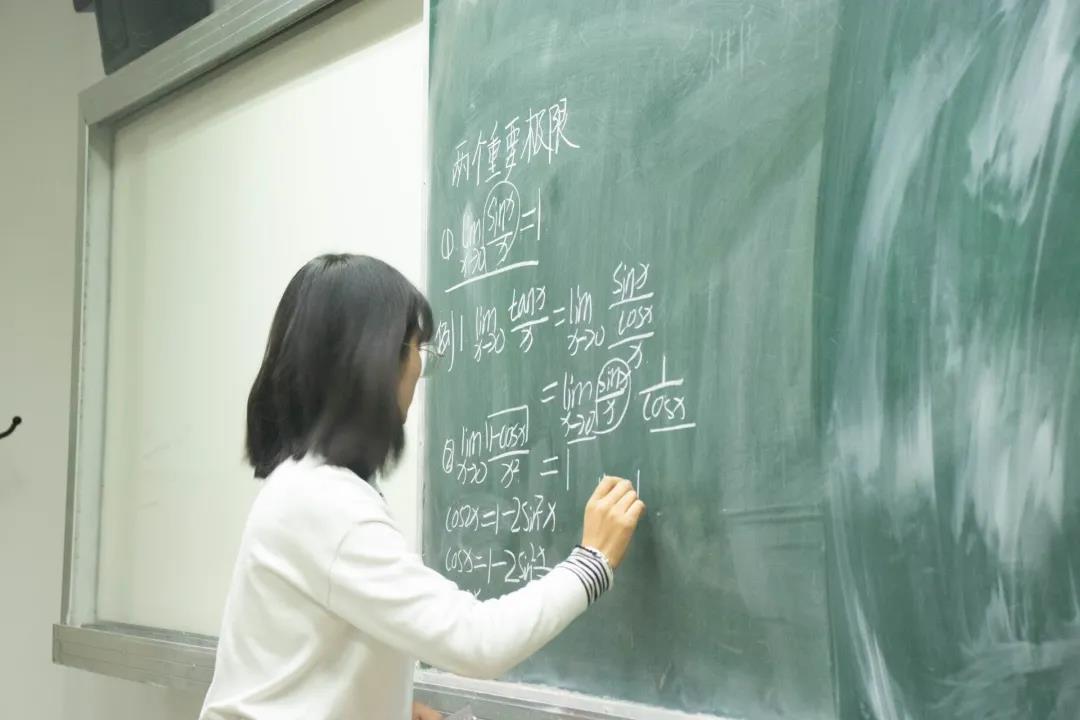 两个重要极限
① lim x→0 sinx/x = 1
例1 lim x→0 tanx/x = lim x→0 sinx/cosx/x
= lim x→0 sinx/x · 1/cosx
= 1
② lim x→0 1-cosx/x²
cos2x=1-2sin²x
cosx=1-2sin²